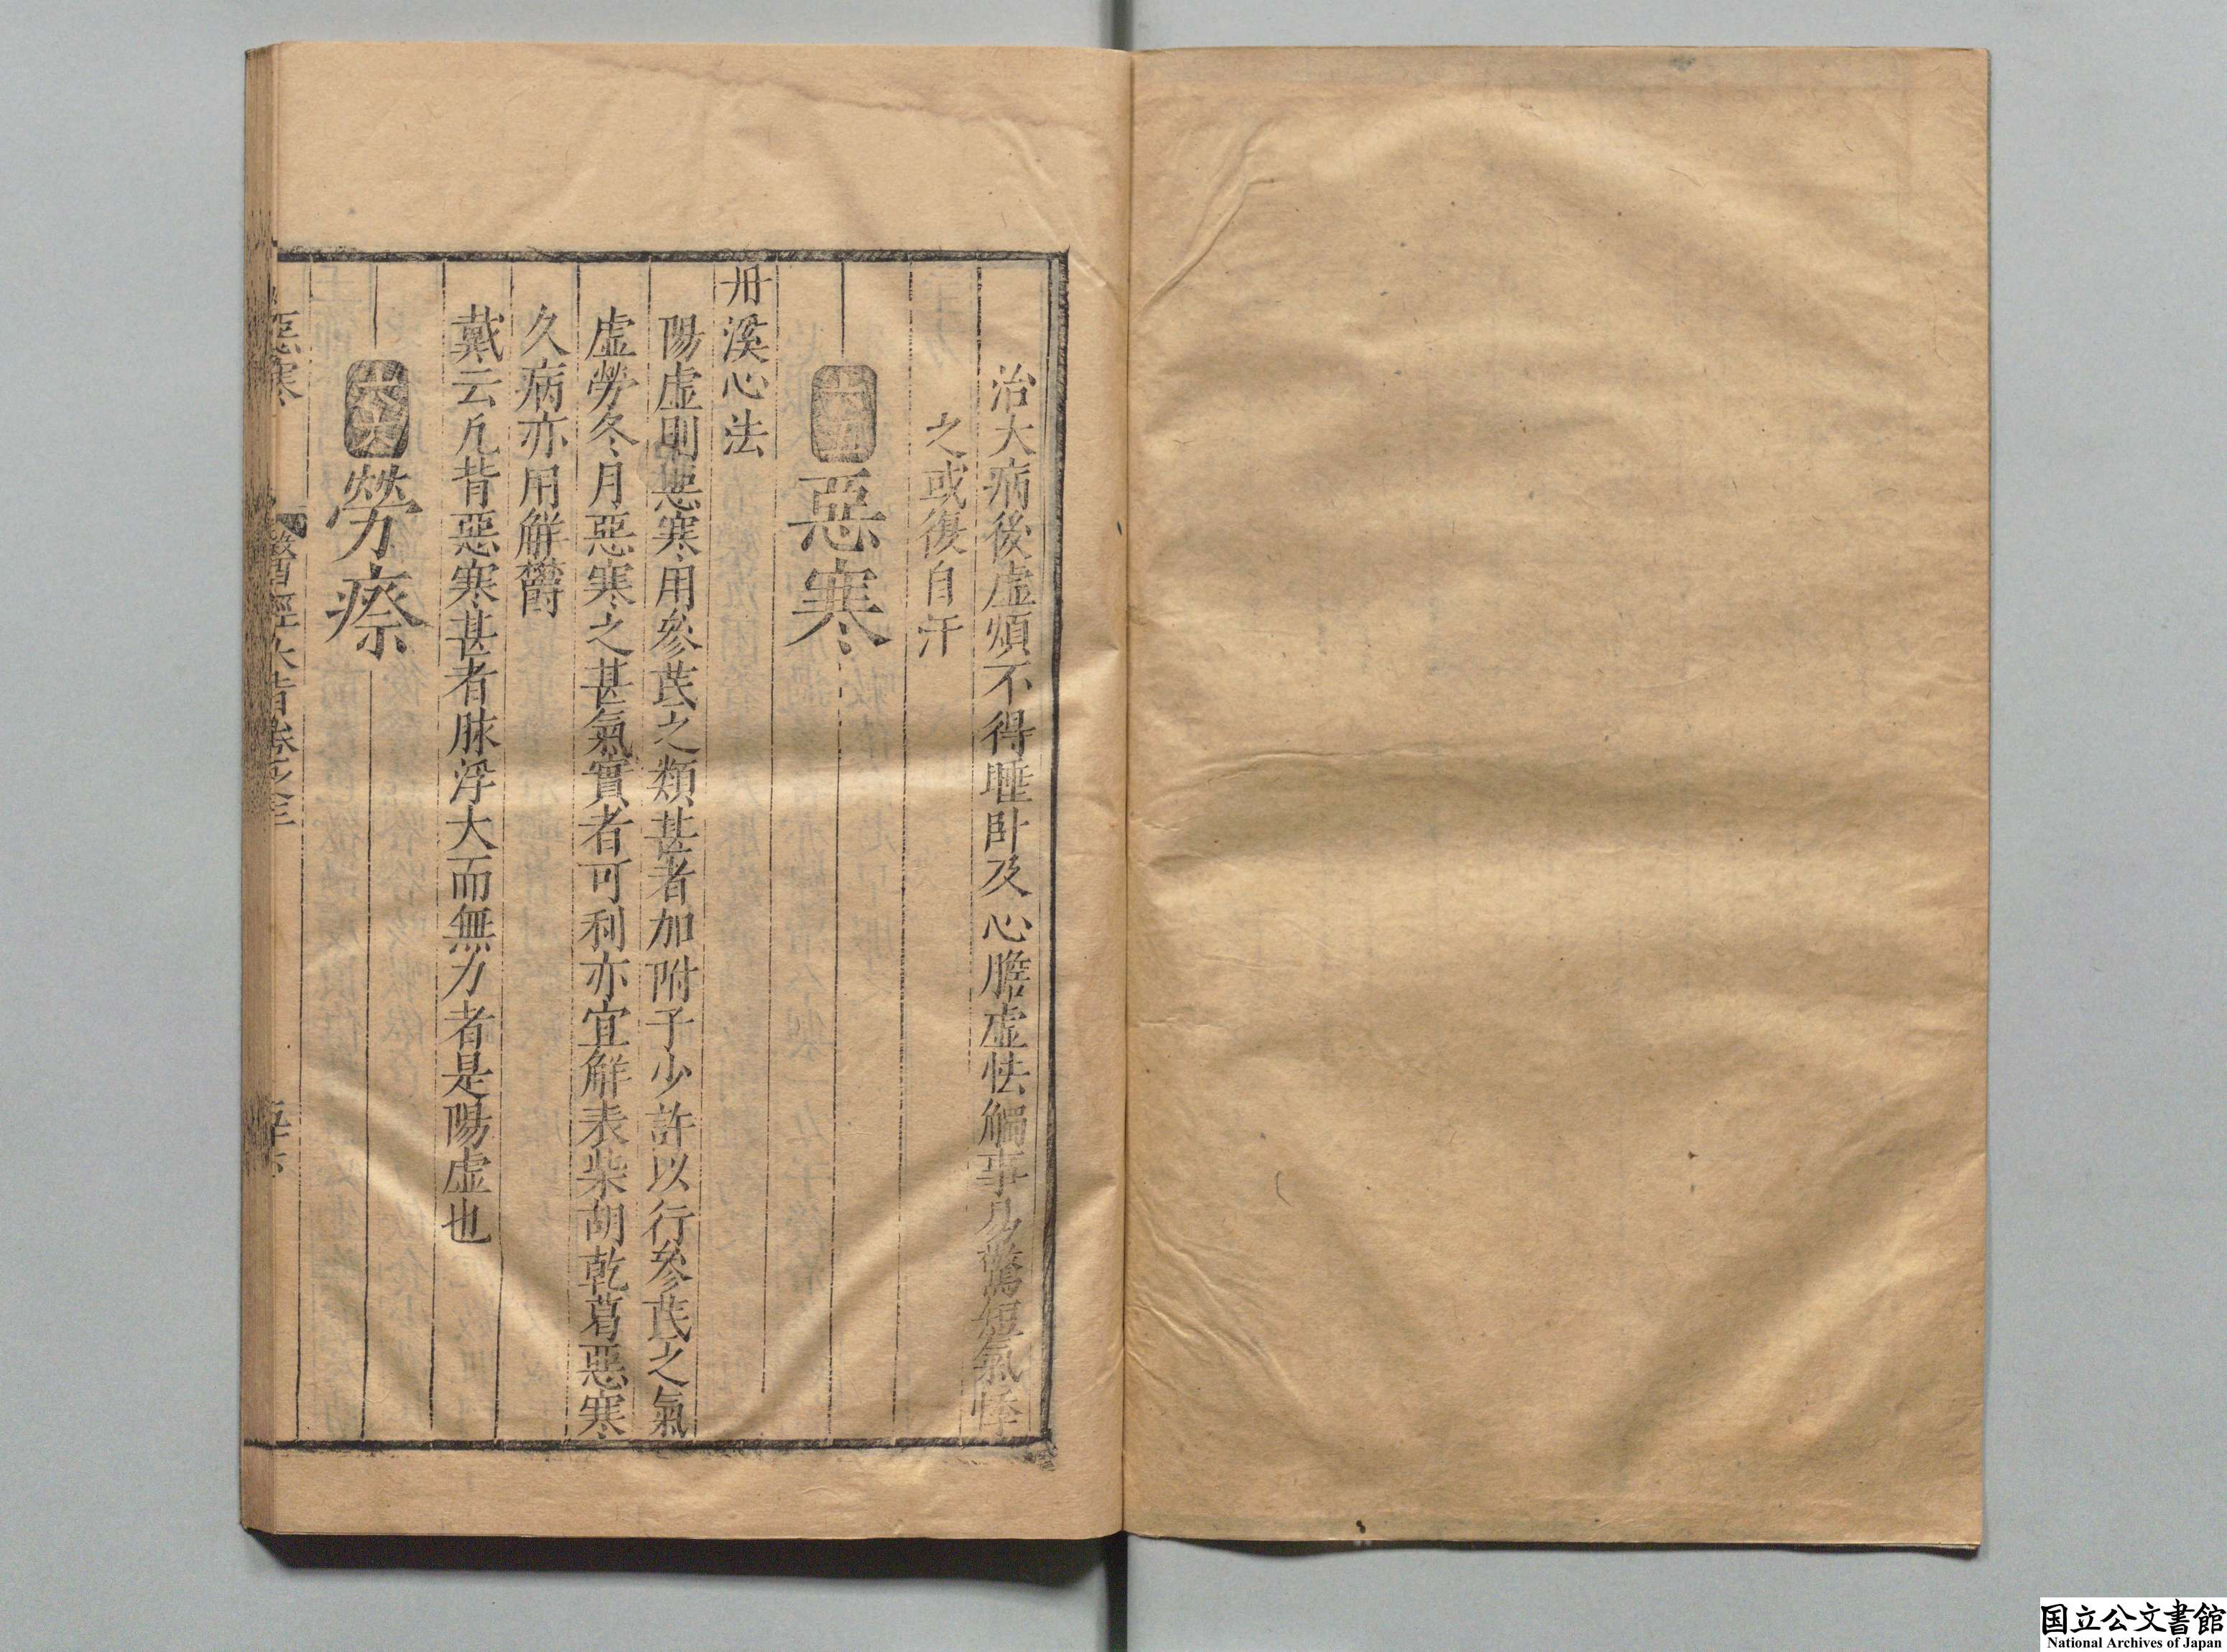 治大病後虛煩不得睡臥及心膽虛怯觸事易驚短氣悸
之或復自汗
惡寒
丹溪心法
陽虛則惡寒用參芪之類甚者加附子少許以行參芪之氣
虛勞冬月惡寒之甚氣實者可利亦宜解表柴胡乾葛惡寒
久病亦用解欝
戴云凡背惡寒甚者脉浮大而無力者是陽虛也
六六 勞瘵
惡寒 醫經大旨卷之三
国立公文書館
National Archives of Japan